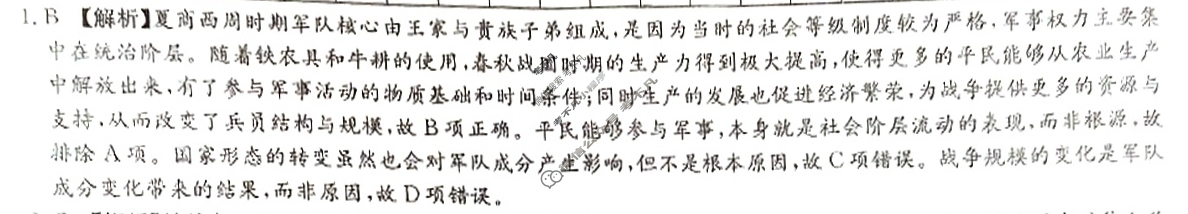 1. B 【解析】夏商西周时期军队核心由王家与贵族子弟组成,是因为当时的社会等级制度较为严格,军事权力主要集
中在统治阶层。随着铁农具和牛耕的使用,春秋战国时期的生产力得到极大提高,使得更多的平民能够从农业生产
中解放出来,有了参与军事活动的物质基础和时间条件;同时生产的发展也促进经济繁荣,为战争提供更多的资源与
支持,从而改变了兵员结构与规模,故B项正确。平民能够参与军事,本身就是社会阶层流动的表现,而非根源,故
排除A项。国家形态的转变虽然也会对军队成分产生影响,但不是根本原因,故C项错误。战争规模的变化是军队
成分变化带来的结果,而非原因,故D项错误。